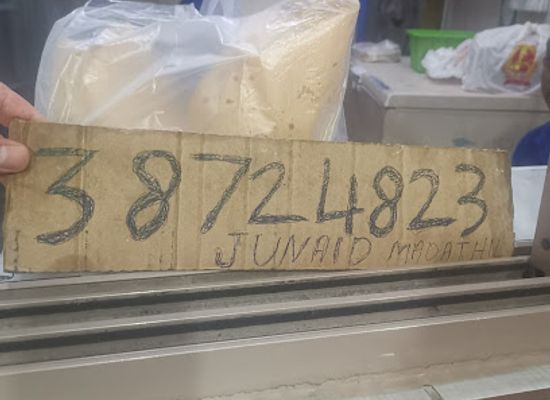 38724823
JUNAID MADATHIL